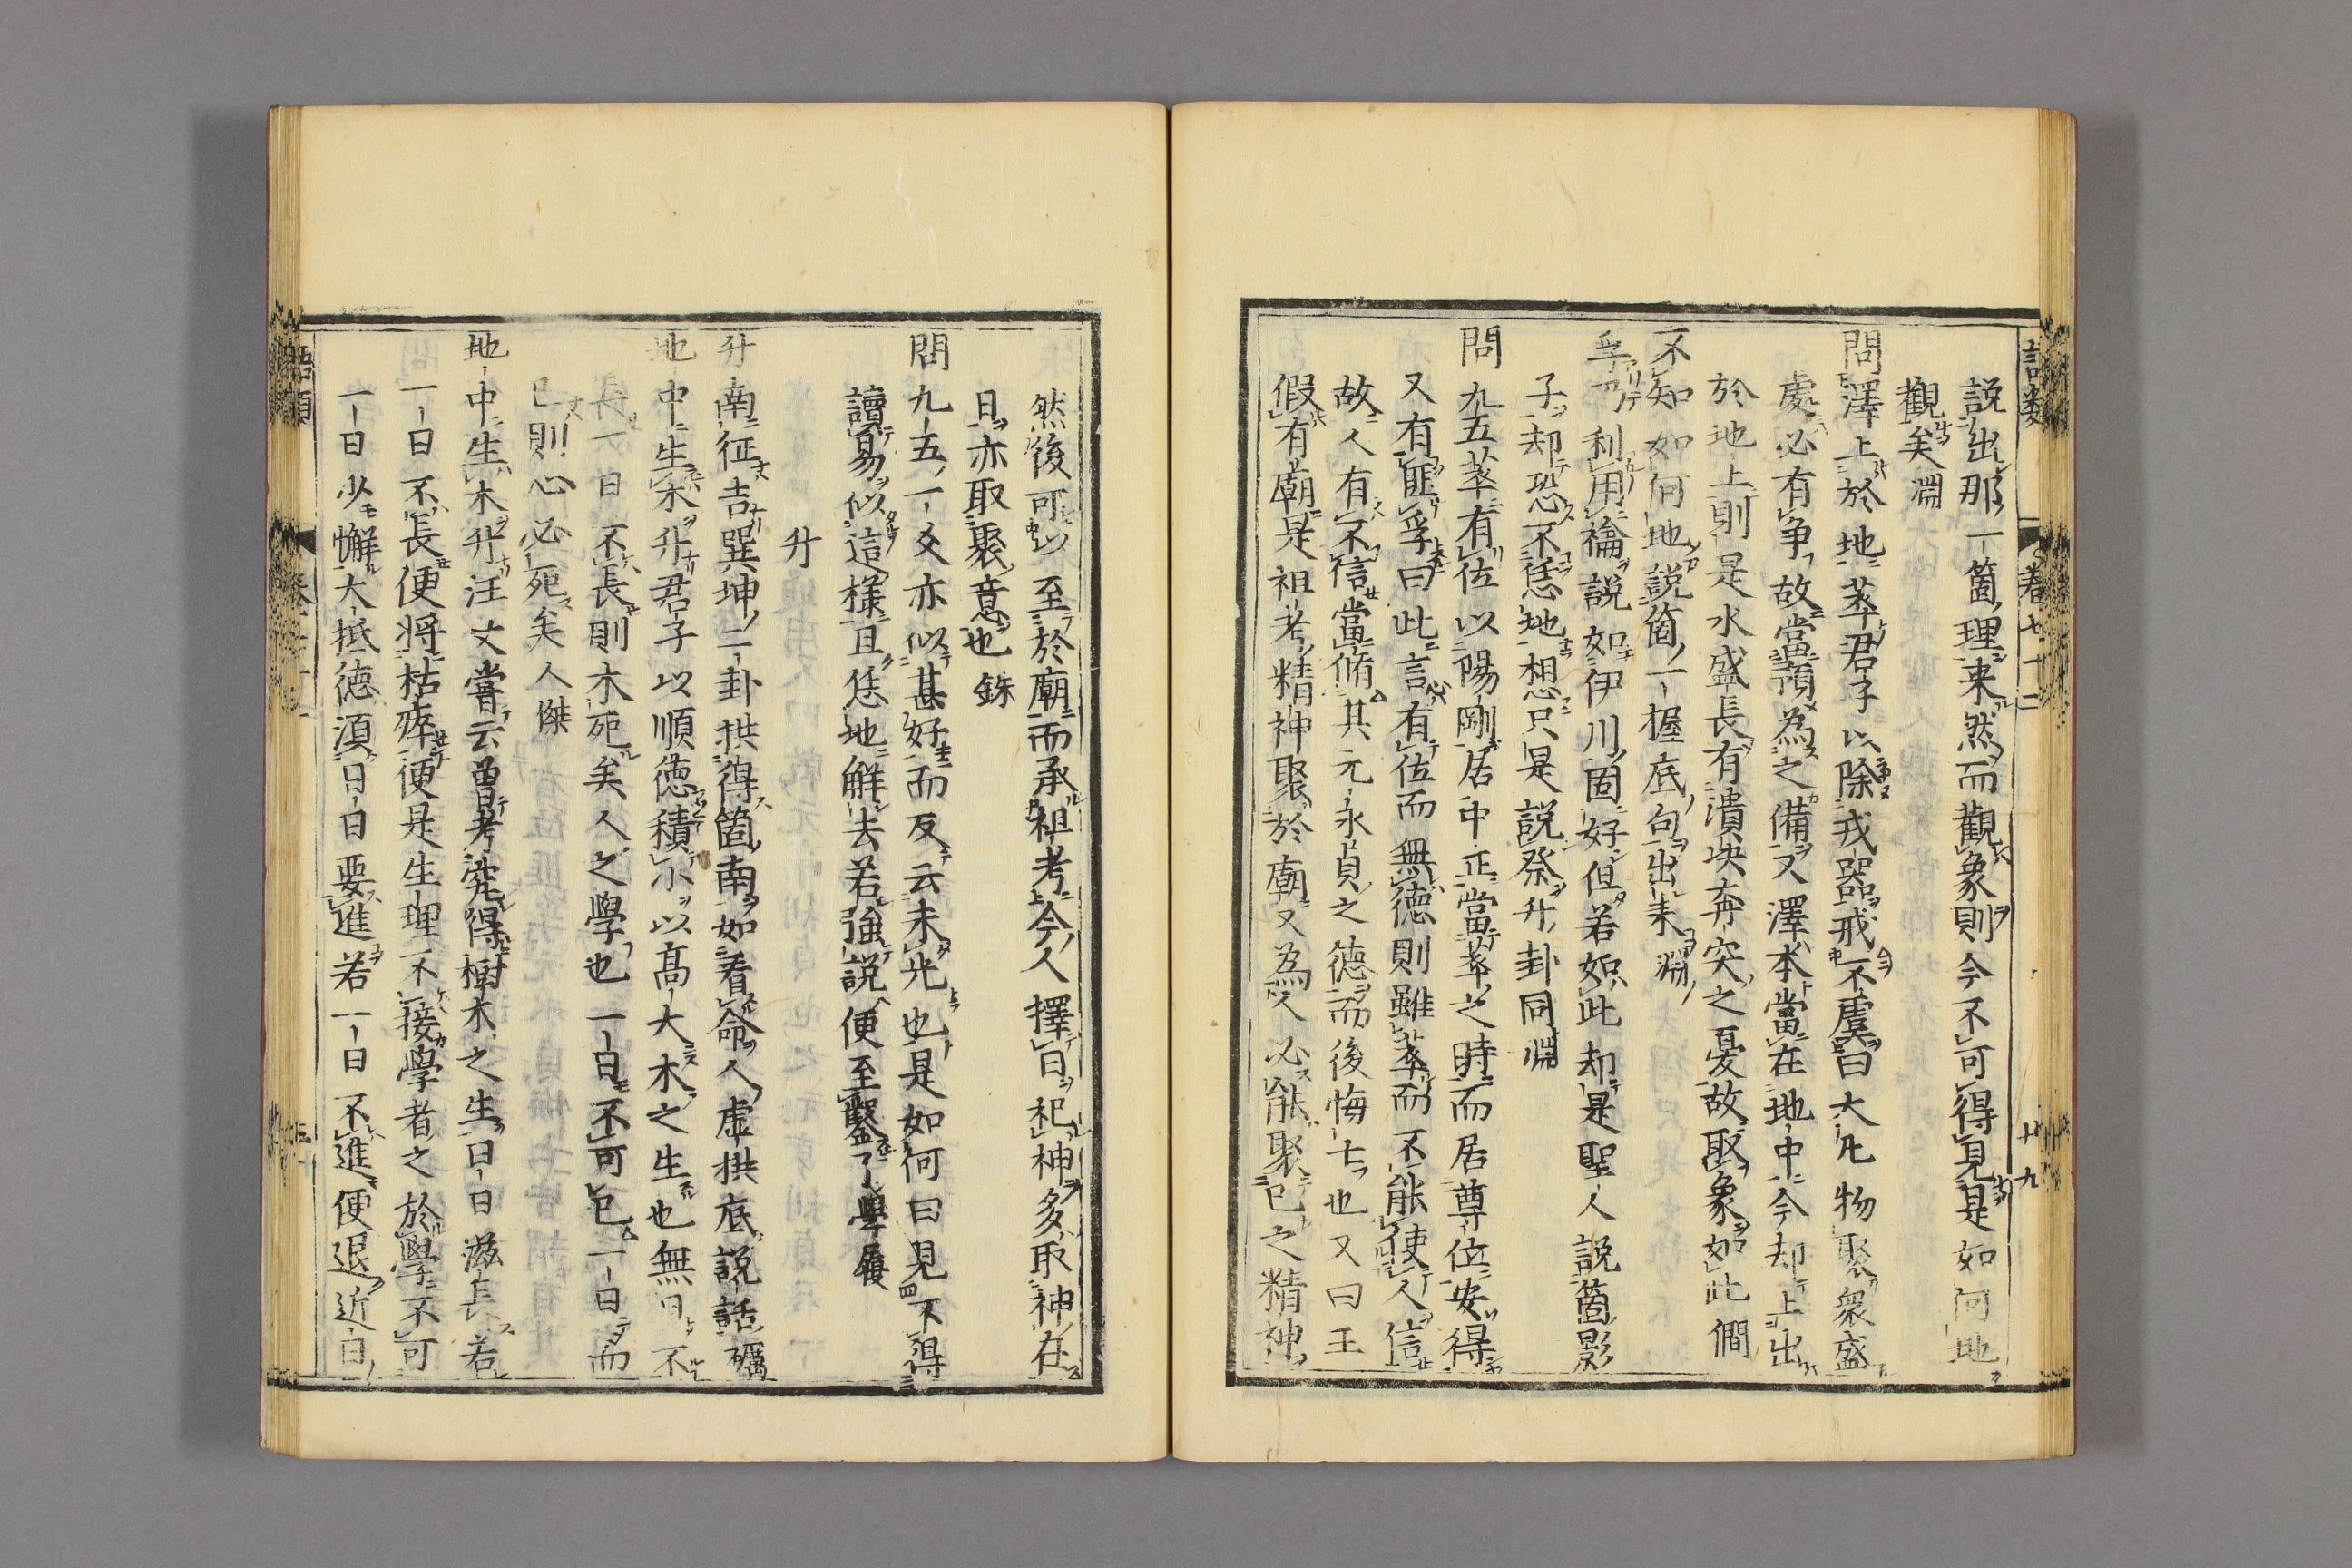 語類 卷七十二 十九
說出那一箇理來然而觀象則今不可得見是如何地
觀矣淵
問澤上於地萃君子以除戎器戒不虞曰大凡物聚衆盛
處必有争故當預為之備又澤本當在地中今却上出
於地上則是水盛長有潰決奔突之憂故取象如此僩
不知如何地說箇一握底句出来淵
孚乃利用禴說如伊川固好但若如此却是聖人說箇影
子却恐不恁地想只是說祭升卦同淵
問九五萃有位以陽剛居中正當萃之時而居尊位安得
又有匪孚曰此言有位而無德則雖萃而不能使人信
故人有不信當脩其元永貞之德而後悔亡也又曰王
假有廟是祖考精神聚於廟又為人必能聚己之精神
然後可以至於廟而承祖考今人擇日祀神多取神在
日亦取聚意也 銖
問九五一爻亦似甚好而反云未光也是如何曰見不得
讀易似這樣且恁地解去若強說便至鑿了學履
升
升南征吉巽坤二卦拱得箇南如看命人虛拱底說話礪
地中生木升君子以順德積小以高大木之生也無日不
長一日不長則木死矣人之學也一日不可已一日而
已則心必死矣人傑
地中生木升汪丈嘗云曾考究得樹木之生日日滋長若
一日不長便將枯瘁便是生理不接學者之於學不可
一日少懈大抵德須日日要進若一日不進便退近日
語類